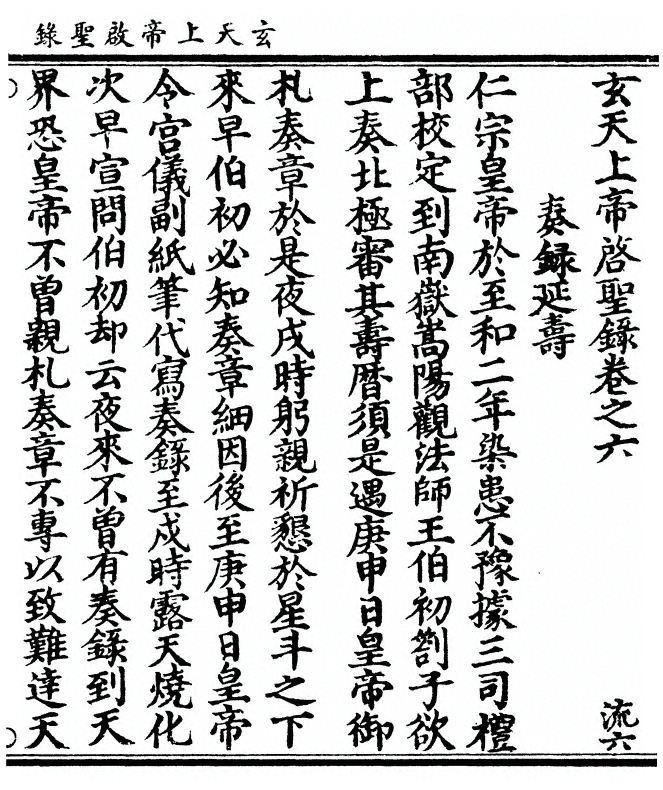 玄天上帝啟聖錄
玄天上帝啓聖錄卷之六
流六
奏録延壽
仁宗皇帝於至和二年染患不豫據三司禮
部校定到南嶽嵩陽觀法師王伯初劄子欲
上奏北極審其壽曆須是遇庚申日皇帝御
札奏章於是夜戌時躬親祈懇於星斗之下
來早伯初必知奏章細因後至庚申日皇帝
令宫儀副紙筆代寫奏錄至戌時露天燒化
次早宣問伯初却云夜來不曾有奏錄到天
界恐皇帝不曾親札奏章不專以致難達天